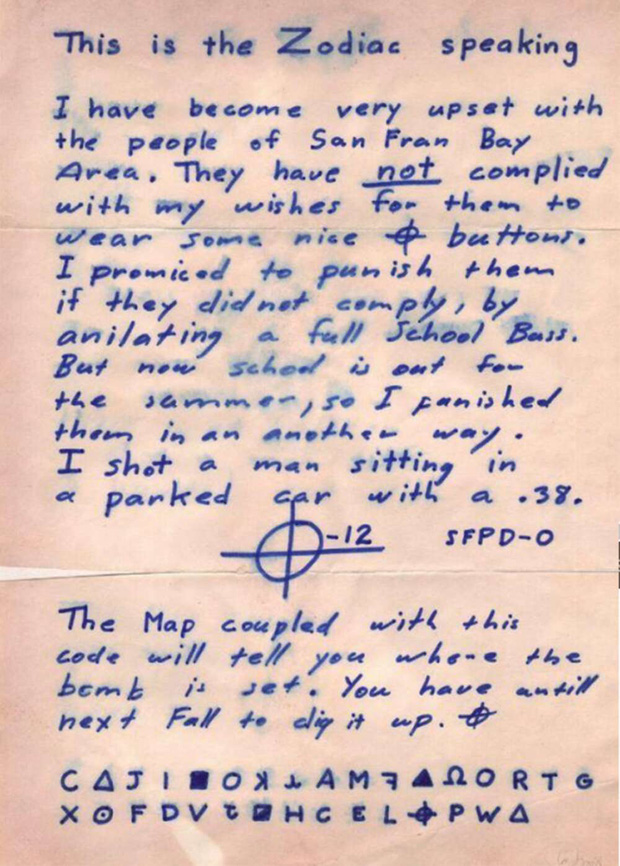 This is the Zodiac speaking
I have become very upset with
the people of San Fran Bay
Area. They have not complied
with my wishes for them to
wear some nice ⌖ buttons.
I promiced to punish them
if they did not comply, by
anilating a full School Buss.
But now school is out for
the summer, so I punished
them in an another way.
I shot a man sitting in
a parked car with a .38.
⌖-12 SFPD-0
The Map coupled with this
code will tell you where the
bomb is set. You have untill
next Fall to dig it up. ⌖
C Δ J I ■ O ꓘ ⅄ A M ꟻ ▲ Ω O R T G
X ⊙ F D V ◪ H C E L ⌖ P W Δ